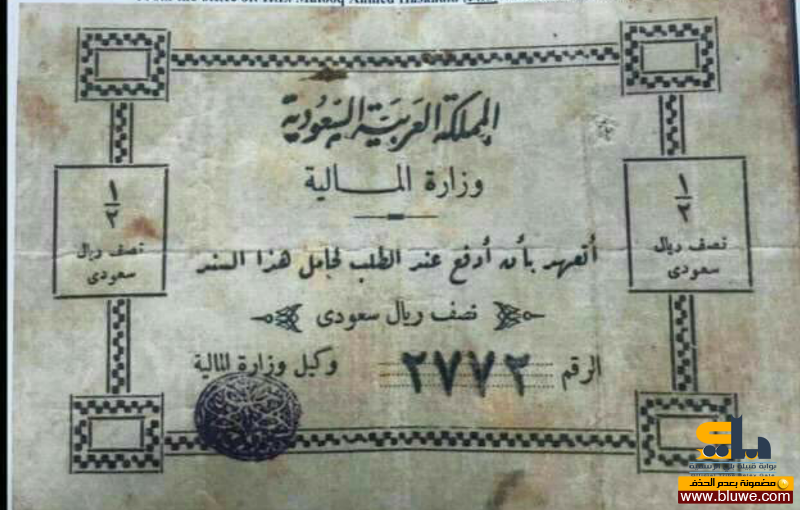 المملكة العربية السعودية
وزارة المالية
١/٢
نصف ريال
سعودى
١/٢
نصف ريال
سعودى
أتعهد بأن أدفع عند الطلب لحامل هذا السند
نصف ريال سعودى
الرقم ٢٧٧٢ وكيل وزارة المالية
بلي
بوابة قبيلة بلي الرسمية
مضمونة بعدم الحذف
www.bluwe.com